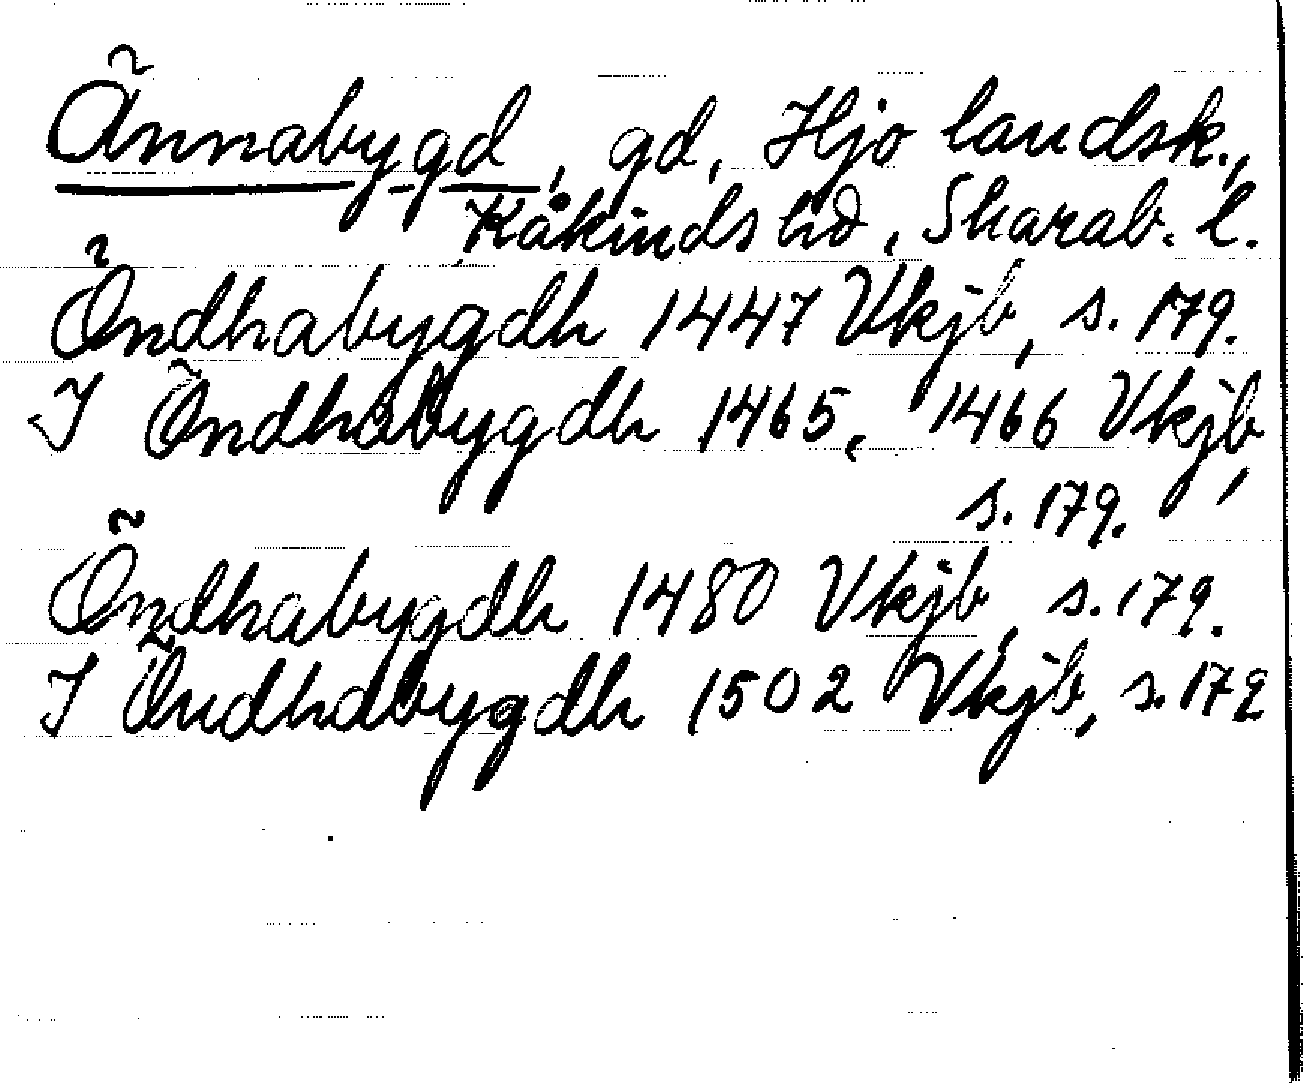 Ännabygd, gd, Hjo landsk.,
Kåkinds hd, Skarab. l.
Öndhabygdh 1447 Vkjb, s. 179.
I Öndhabygdh 1465, 1466 Vkjb,
s. 179.
Öndhabygdh 1480 Vkjb, s. 179.
I Öndhabygdh 1502 Vkjb, s. 179